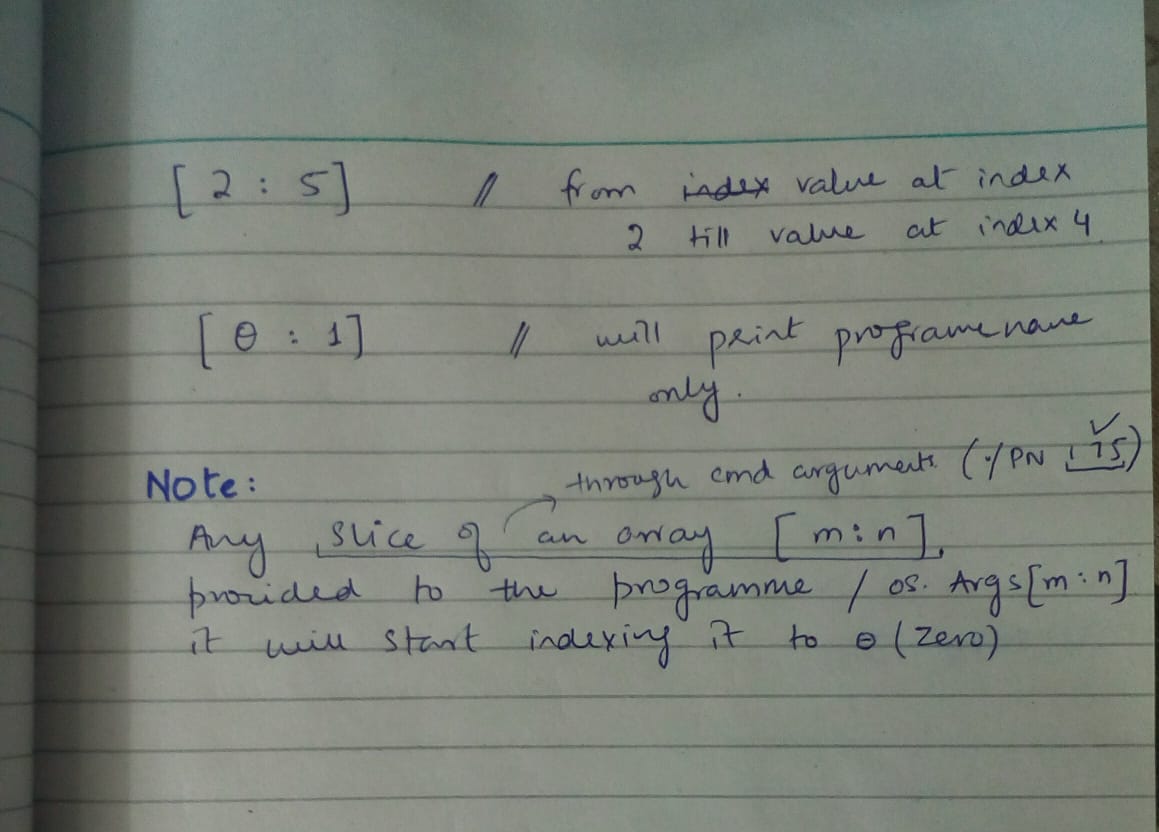 [ 2 : 5 ] // from index value at index
2 till value at index 4
[ 0 : 1 ] // will print programe name
only.
Note: through cmd arguments (./PN
Any slice of an array [m:n],
provided to the programme / os.Args[m:n]
it will start indexing it to 0 (zero)